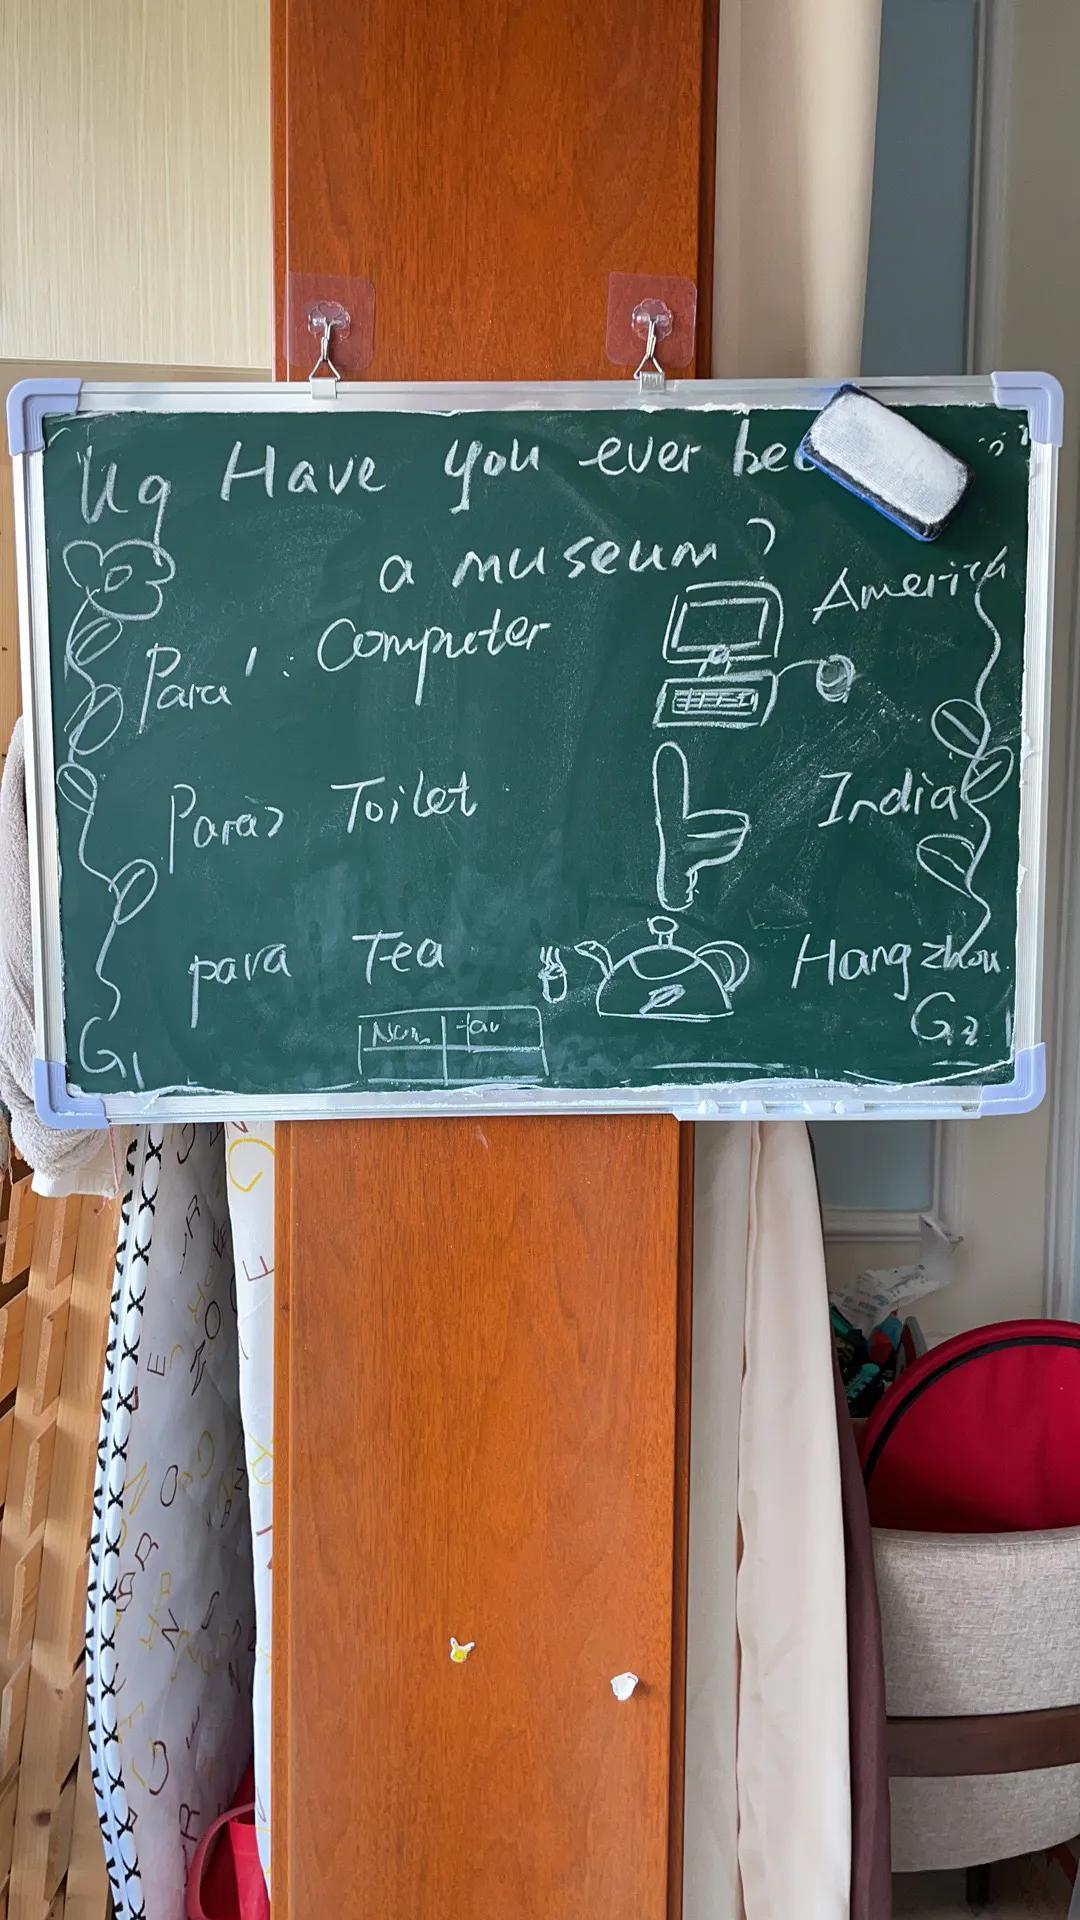 U9 Have you ever bee
a museum?
America
Para 1: Computer
Para2 Toilet
India
para Tea
Hangzhou
G2
Nam
fav
G1